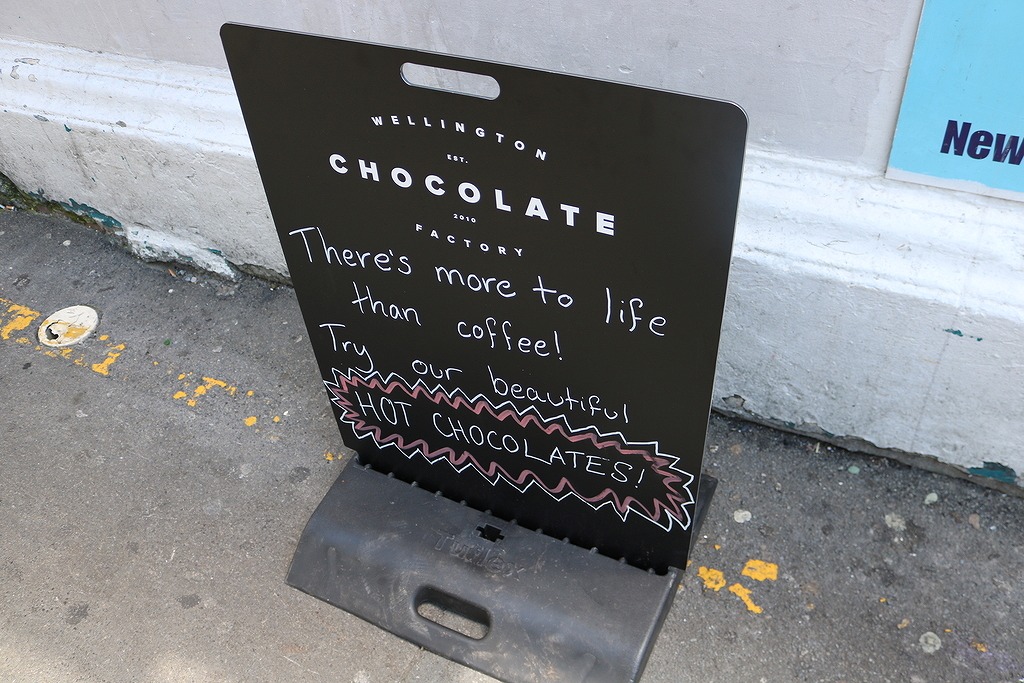 WELLINGTON
EST.
CHOCOLATE
2010
FACTORY
There's more to life
than coffee!
Try our beautiful
HOT CHOCOLATES!
New